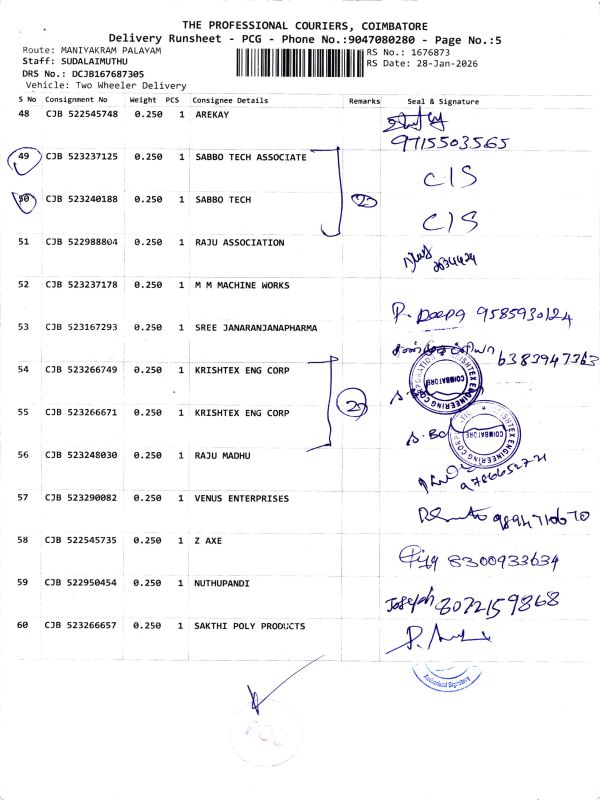 THE PROFESSIONAL COURIERS, COIMBATORE
Delivery Runsheet - PCG - Phone No.:9047080280 - Page No.:5
Route: MANIYAKRAM PALAYAM
Staff: SUDALAIMUTHU
DRS No.: DCJB167687305
Vehicle: Two Wheeler Delivery
RS No.: 1676873
RS Date: 28-Jan-2026
S No Consignment No Weight PCS Consignee Details Remarks Seal & Signature
48 CJB 522545748 0.250 1 AREKAY
9715503565
49 CJB 523237125 0.250 1 SABBO TECH ASSOCIATE C/S
50 CJB 523240188 0.250 1 SABBO TECH C/S
51 CJB 522988804 0.250 1 RAJU ASSOCIATION
52 CJB 523237178 0.250 1 M M MACHINE WORKS
P. Deepa 9585930124
53 CJB 523167293 0.250 1 SREE JANARANJANAPHARMA
6383947363
54 CJB 523266749 0.250 1 KRISHTEX ENG CORP
COIMBATORE
55 CJB 523266671 0.250 1 KRISHTEX ENG CORP
KRISHTEX ENGINEERING CORPORATION
COIMBATORE
56 CJB 523248030 0.250 1 RAJU MADHU
57 CJB 523290082 0.250 1 VENUS ENTERPRISES
9894710670
58 CJB 522545735 0.250 1 Z AXE
8300933634
59 CJB 522950454 0.250 1 NUTHUPANDI
Joseph 8072159868
60 CJB 523266657 0.250 1 SAKTHI POLY PRODUCTS
Authorised Signatory
PCG